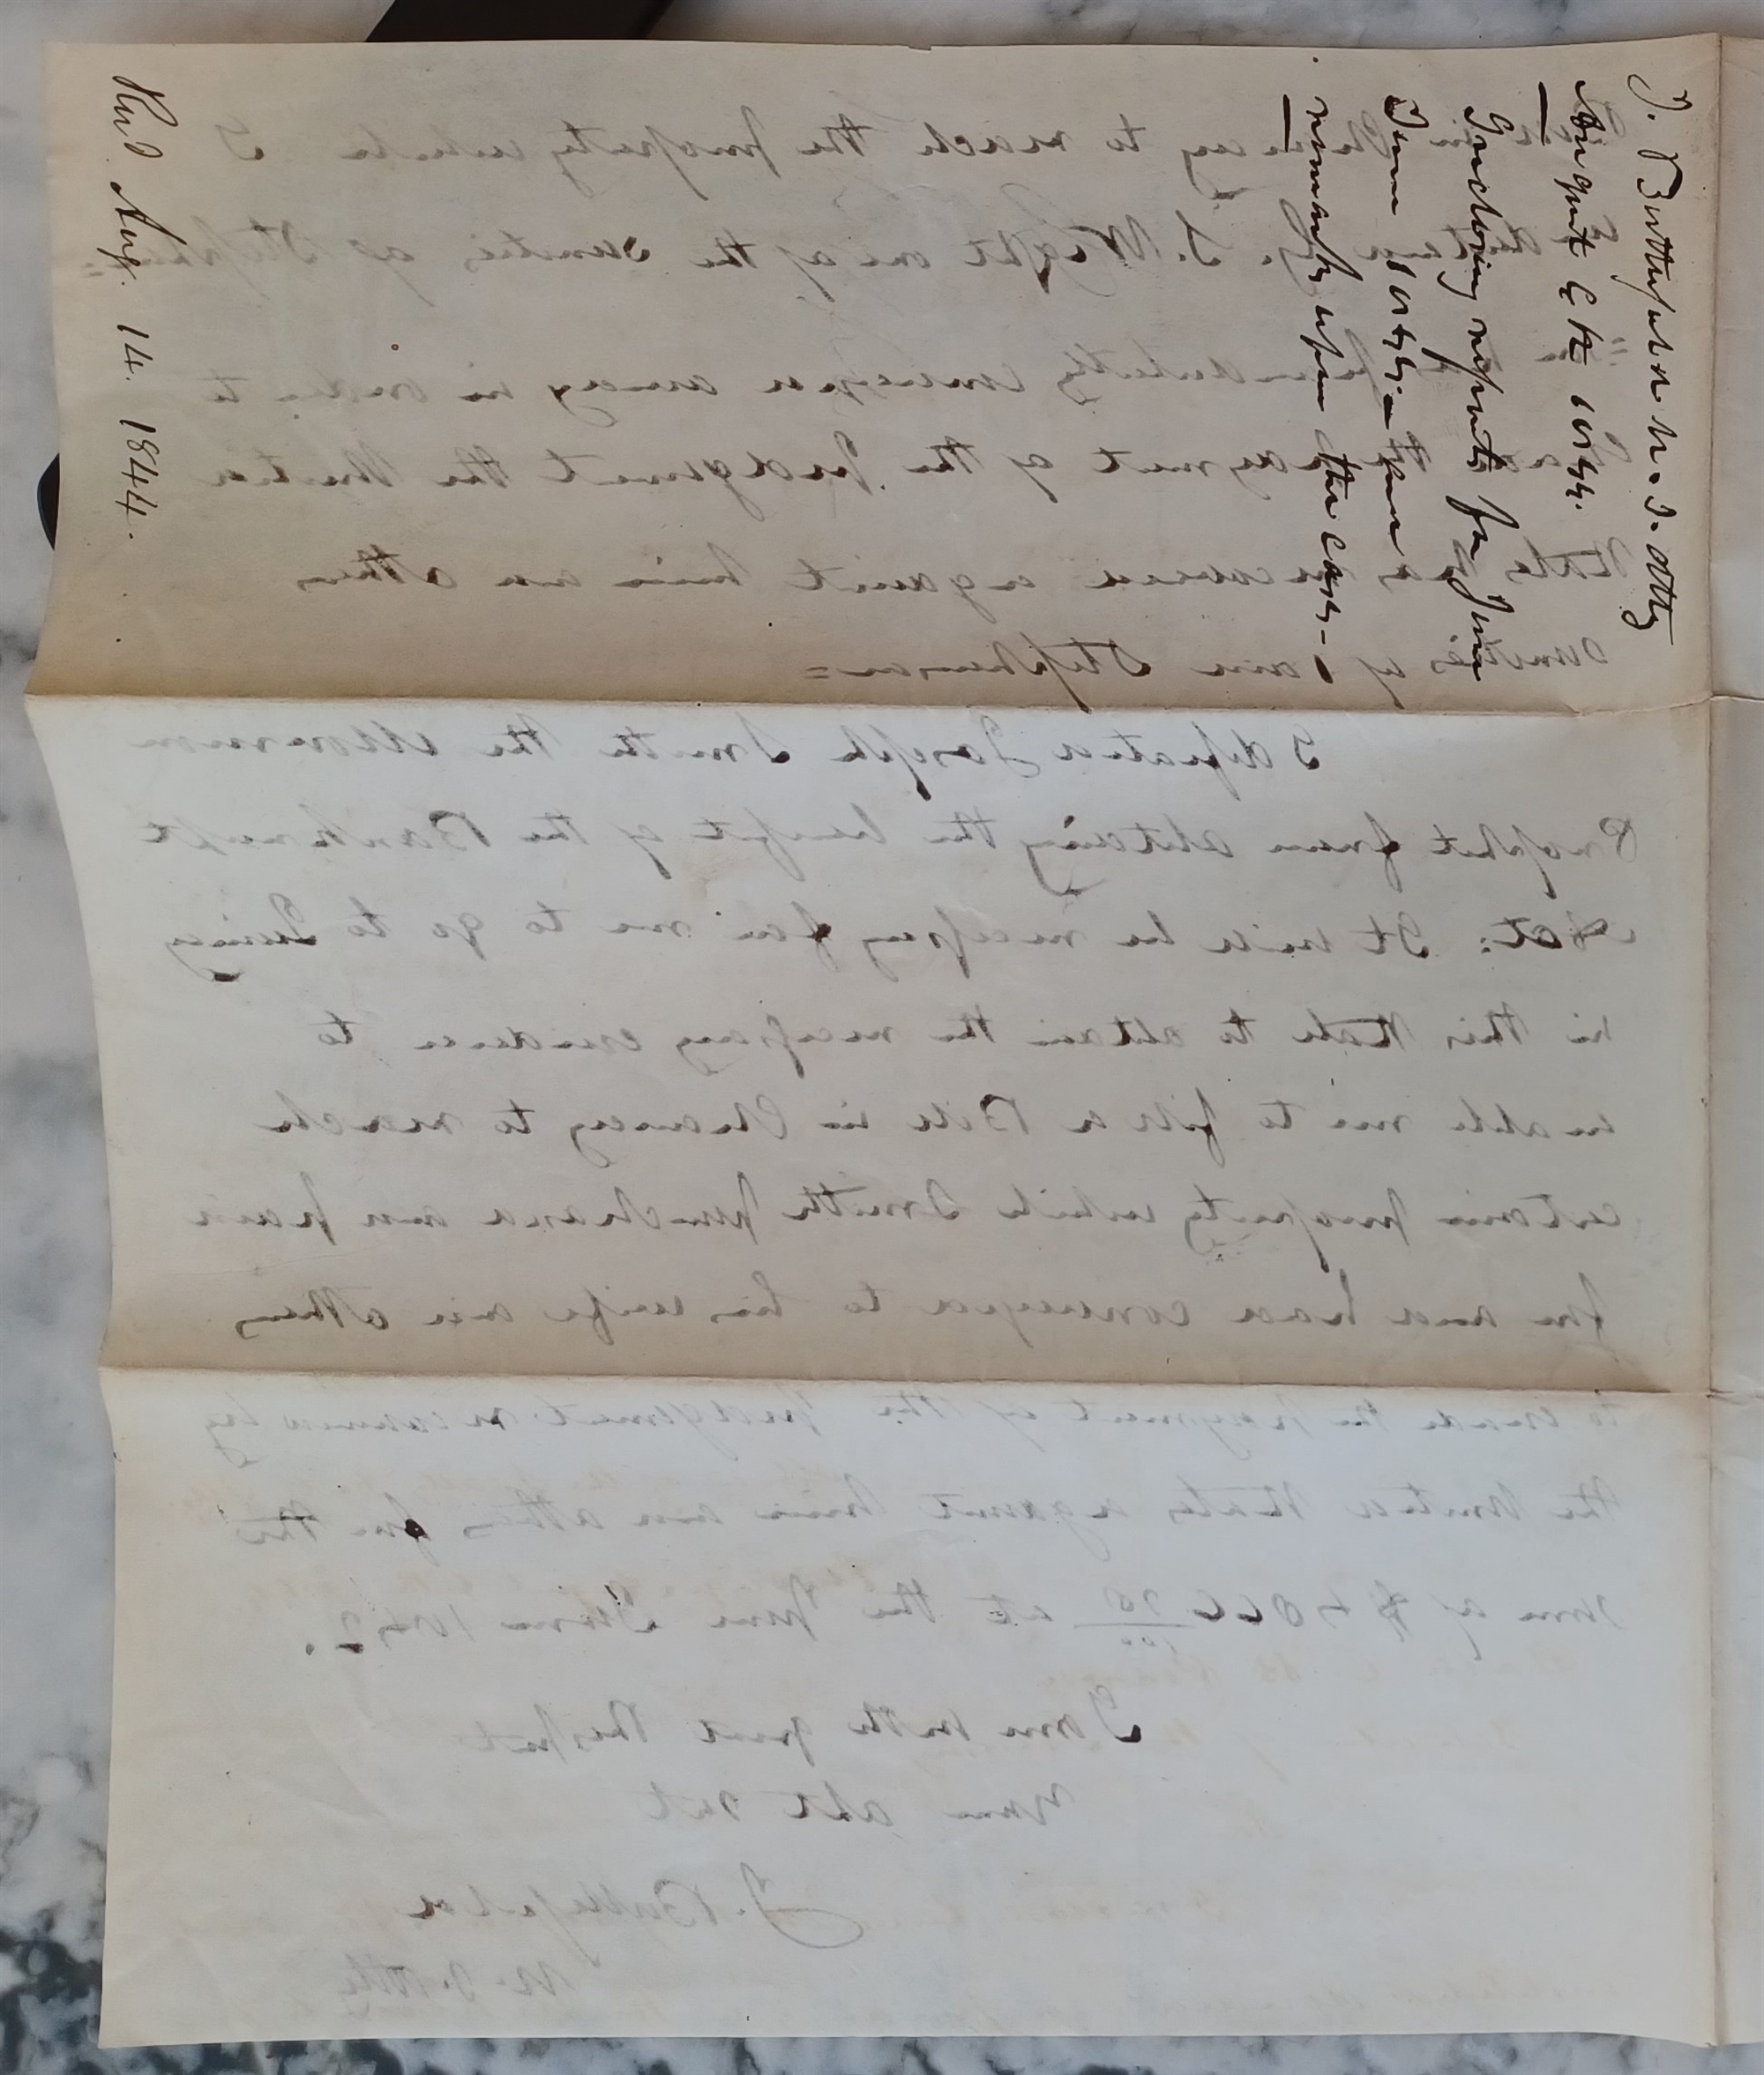 J. Butterfield U. S. Atty
August 6th 1844.
Enclosing reports for June
Term 1844; and
remarks upon the cases—
Recd Aug. 14. 1844.
in Chancy to reach the property which I
S. Wright one of the sureties of Stephen=
=son fraudulently conveyed away in order to
evade the payment of the Judgment the United
States has recovered against him and others
sureties of said Stephenson=
I defeated Joseph Smith the Mormon
Prophet from obtaing the benefit of the Bankrupt
Act: It will be necessary for me to go to Quincy
in this State to obtain the necessary evidence to
enable me to file a Bill in Chancy to reach
certain property which Smith purchased and paid
for and had conveyed to his wife and others
to evade the payment of the Judgment recovered by
the United States against him and others for the
sum of $ 4866 28/100 at the June Term 1842.
I am with great Respect
Your obt Svt
J. Butterfield
U. S. Atty